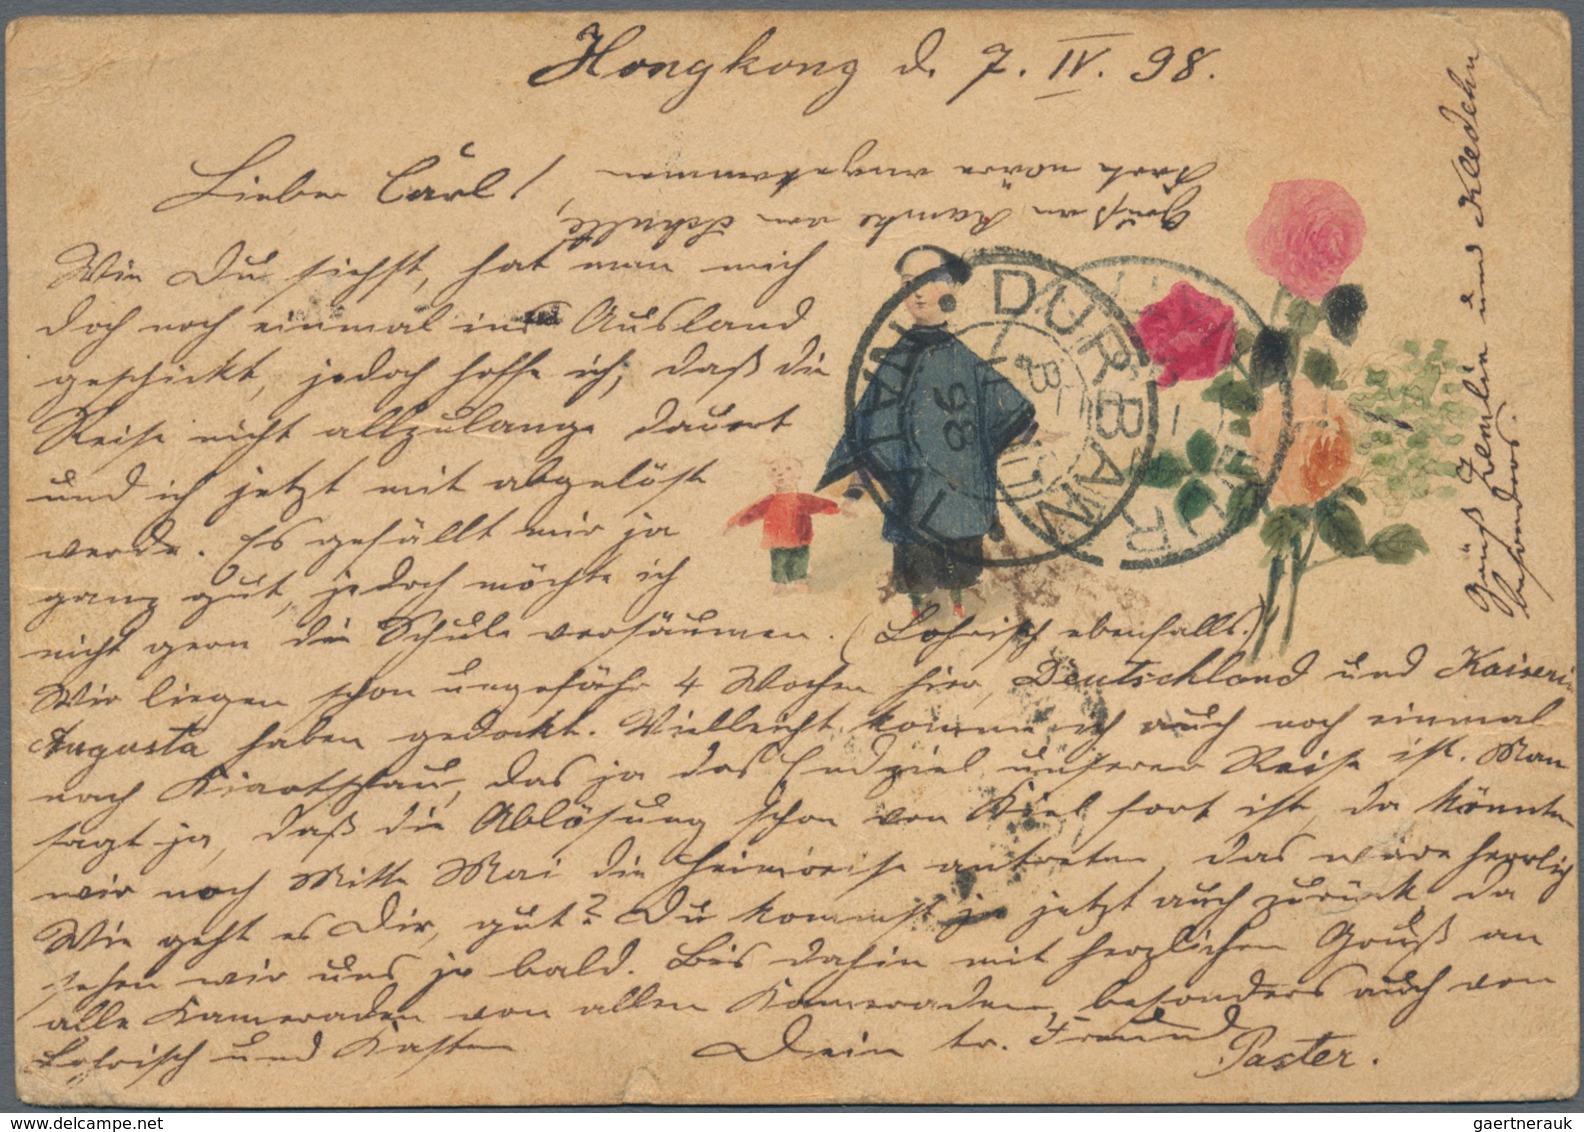 Hongkong d. 7. IV. 98.
Lieber Carl!
Gruß an Ramke von Schultt,
Noch wäre angekommen
Wie Du siehst, hat man mich
doch noch einmal ins Ausland
geschickt, jedoch hoffe ich, daß die
Reise nicht allzulange dauert
und ich jetzt mit abgelöst
werde. Es gefällt mir ja
ganz gut, jedoch möchte ich
nicht gern die Schule versäumen. (Lohrisch ebenfalls.)
Wir liegen schon ungefähr 4 Wochen hier, Deutschland und Kaiserin
Augusta haben gedockt. Vielleicht komme ich auch noch einmal
nach Kiaotschau, das ja das Endziel unserer Reise ist. Man
sagt ja, daß die Ablösung schon von Kiel fort ist, da könnten
wir noch Mitte Mai die Heimreise antreten, das wäre herrlich
Wie geht es Dir, gut? Du kommst ja jetzt auch zurück, da
sehen wir uns ja bald. Bis dahin mit herzlichen Gruß an
alle Kameraden von allen Kameraden, besonders auch von
Lohrisch und Kasten
Dein tr. Freund
Paster.
Gruß Zemlin und Kledehn
besonders.
DURBAN
NATAL
98
gaertnerauk @ delcampe.net